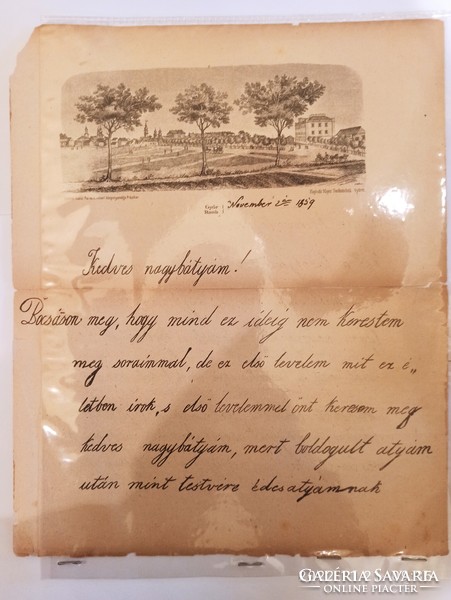 November 2= 1859
Kedves nagybátyám!
Bocsáson meg, hogy mind ez ideig nem kerestem
meg soraimmal, de ez első levelem mit ez é„
letben irok, s első levelemmel önt keresem meg
kedves nagybátyám, mert boldogult atyám
után mint testvére édesatyámnak
GALÉRIA SAVARIA
ONLINE PIACTÉR